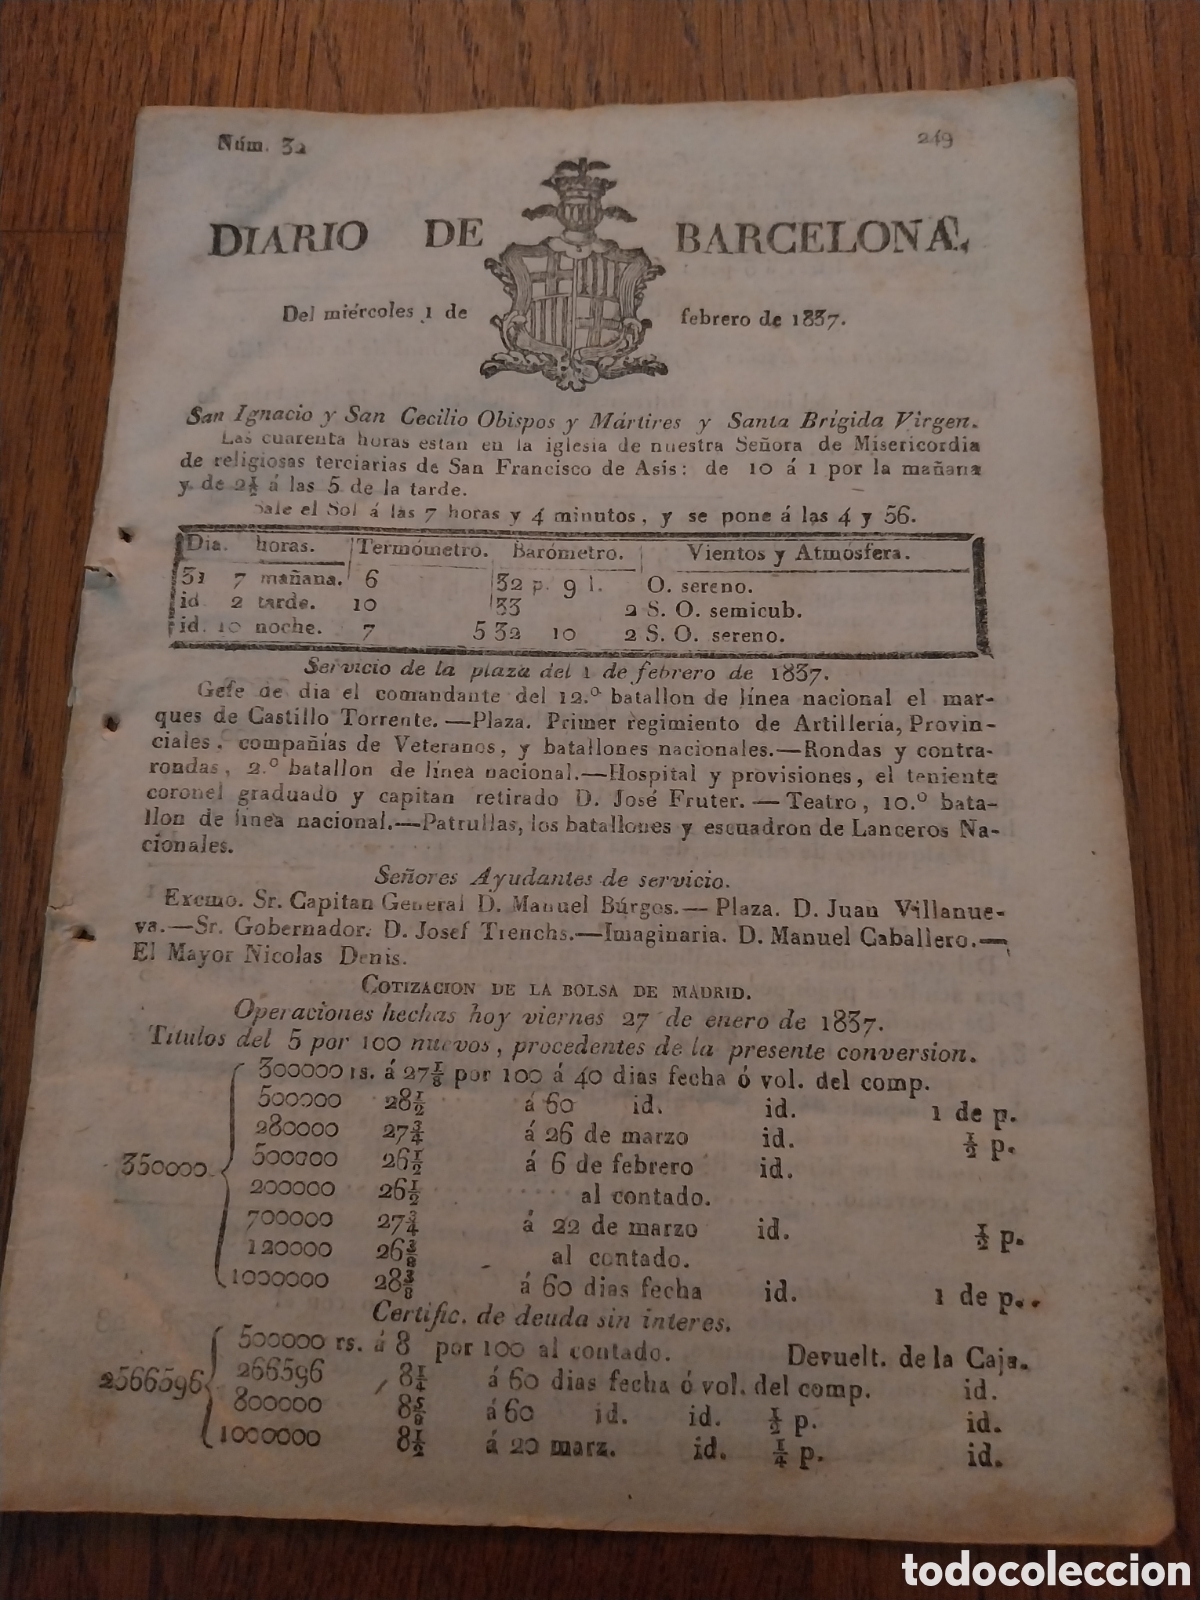 Núm. 32 249
DIARIO DE BARCELONA,
Del miércoles 1 de febrero de 1837.
San Ignacio y San Cecilio Obispos y Mártires y Santa Brígida Virgen.
Las cuarenta horas estan en la iglesia de nuestra Señora de Misericordia
de religiosas terciarias de San Francisco de Asis: de 10 á 1 por la mañana
y de 2½ á las 5 de la tarde.
Sale el Sol á las 7 horas y 4 minutos, y se pone á las 4 y 56.
Dia. horas. Termómetro. Barómetro. Vientos y Atmósfera.
31 7 mañana. 6 32 p. 9 l. O. sereno.
id 2 tarde. 10 33 2 S. O. semicub.
id. 10 noche. 7 5 32 10 2 S. O. sereno.
Servicio de la plaza del 1 de febrero de 1837.
Gefe de dia el comandante del 12.º batallon de línea nacional el mar-
ques de Castillo Torrente.—Plaza. Primer regimiento de Artillería, Provin-
ciales, compañías de Veteranos, y batallones nacionales.—Rondas y contra-
rondas, 2.º batallon de línea nacional.—Hospital y provisiones, el teniente
coronel graduado y capitan retirado D. José Fruter.—Teatro, 10.º bata-
llon de línea nacional.—Patrullas, los batallones y escuadron de Lanceros Na-
cionales.
Señores Ayudantes de servicio.
Excmo. Sr. Capitan General D. Manuel Búrgos.—Plaza. D. Juan Villanue-
va.—Sr. Gobernador. D. Josef Trenchs.—Imaginaria. D. Manuel Caballero.—
El Mayor Nicolas Denis.
COTIZACION DE LA BOLSA DE MADRID.
Operaciones hechas hoy viernes 27 de enero de 1837.
Títulos del 5 por 100 nuevos, procedentes de la presente conversion.
300000 rs. á 27⅛ por 100 á 40 dias fecha ó vol. del comp.
500000 28½ á 60 id. id. 1 de p.
280000 27¾ á 26 de marzo id. ½ p.
350000 500000 26½ á 6 de febrero id.
200000 26½ al contado.
700000 27¾ á 22 de marzo id. ½ p.
120000 26⅜ al contado.
1000000 28⅜ á 60 dias fecha id. 1 de p..
Certific. de deuda sin interes.
500000 rs. á 8 por 100 al contado. Devuelt. de la Caja.
2566596 266596 8¼ á 60 dias fecha ó vol. del comp. id.
800000 8⅝ á 60 id. id. ½ p. id.
1000000 8½ á 20 marz. id. ¼ p. id.
todocoleccion